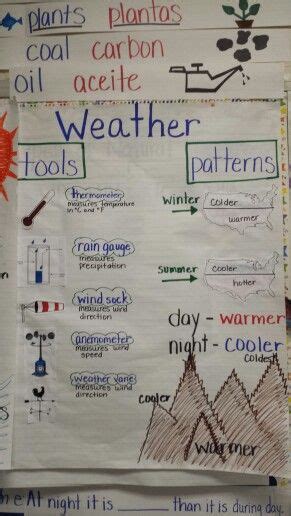 plants plantas
coal carbon
oil aceite
Weather
tools
thermometer
measures temperature
in °C and °F
rain gauge
measures
precipitation
wind sock
measures wind
direction
anemometer
measures wind
speed
weather vane
measures wind
direction
patterns
Winter
colder
warmer
Summer
cooler
hotter
day - warmer
night - cooler
coldest
cooler
warmer
At night it is ______ than it is during day.